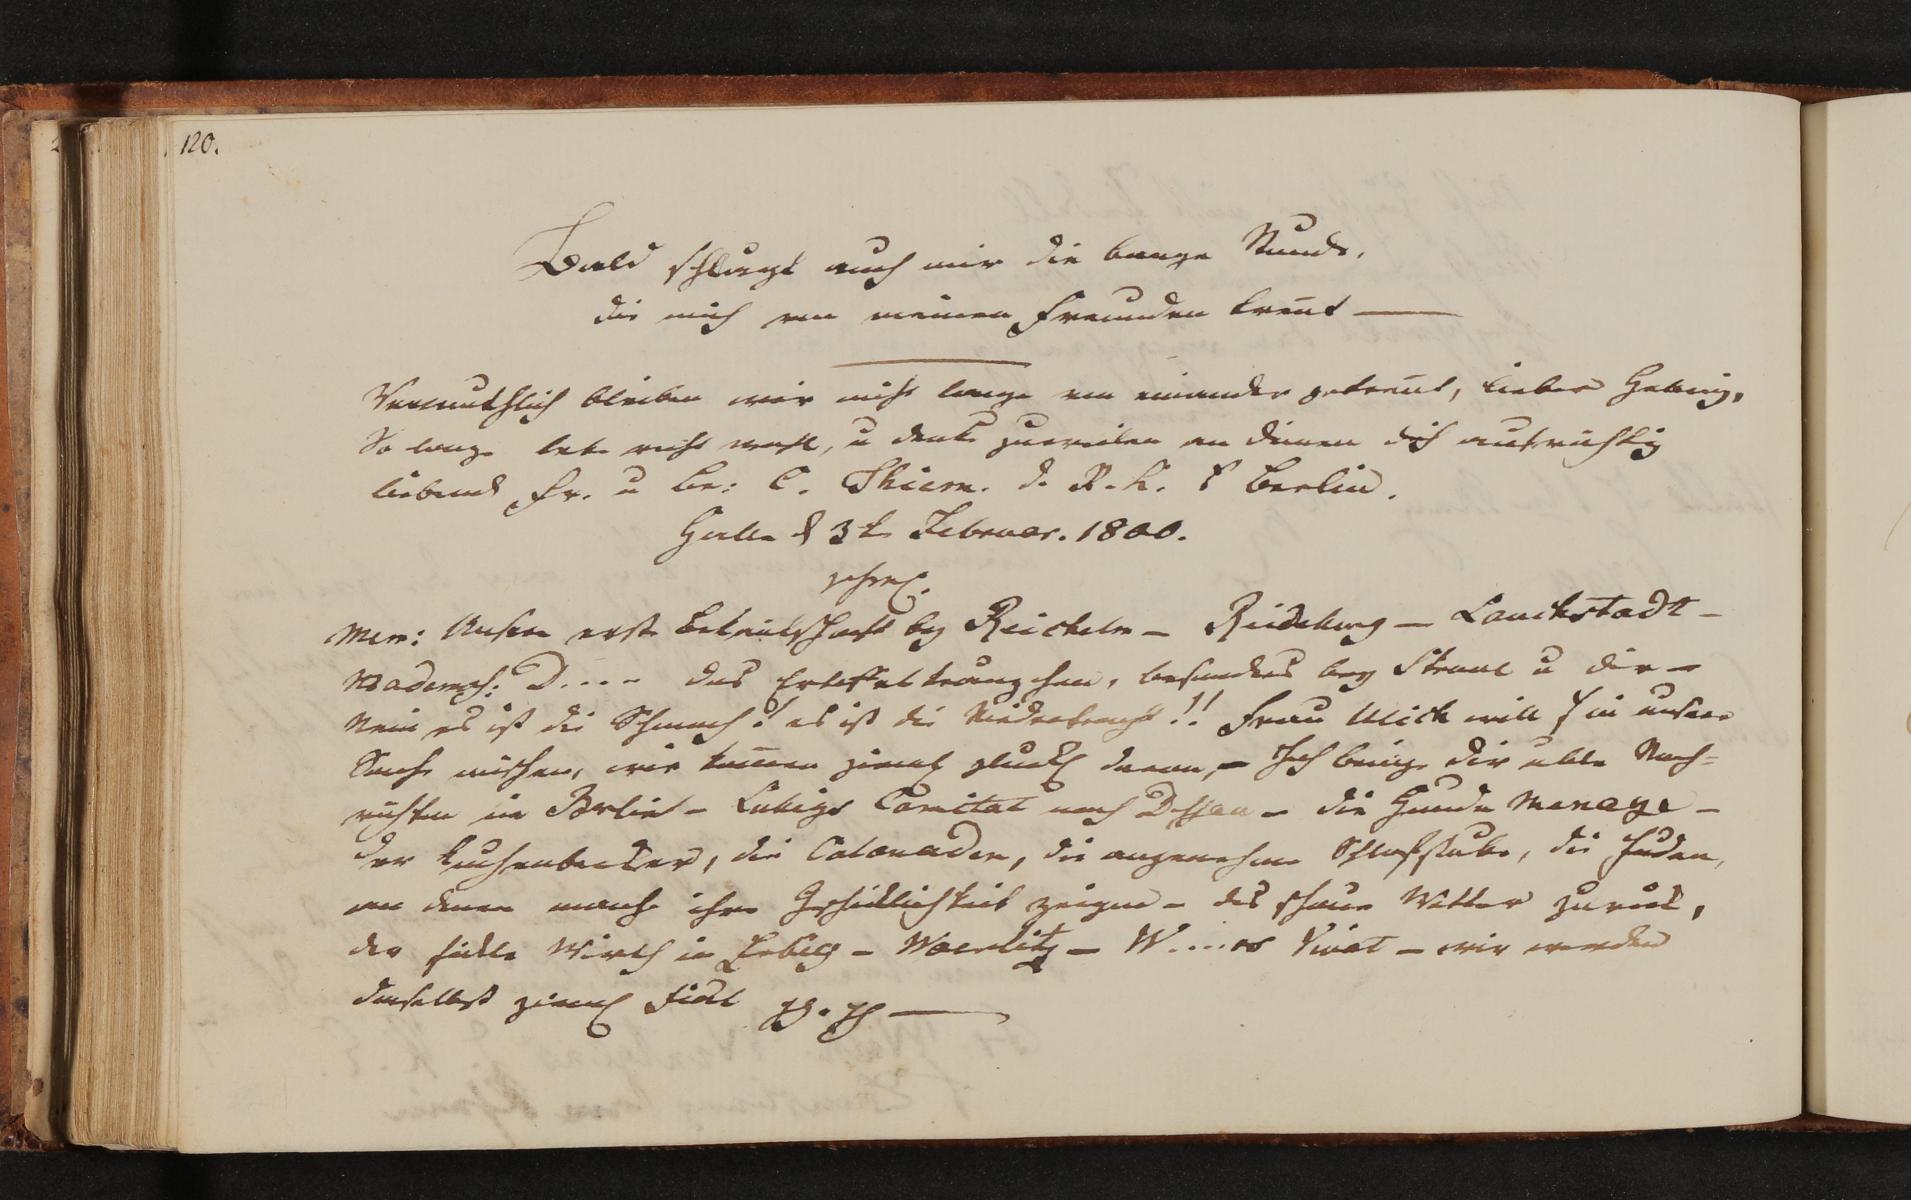 120.
Bald schlägt auch mir die bange Stunde,
die mich von meinen Freunden trent —
Vermuthlich bleiben wir nicht lange von einander getrent, lieber
So lange lebe recht wohl, u denke zuweilen an deinen dich aufrichtig
liebend Fr. u Br: C. Thiem. d. R. K. a Berlin.
Halle d 3t Februar. 1800.
Mem: Unsere erste Bekantschaft bey Reichelm — Reideburg — Lauchstädt —
Mademois: D.... das, besonders bey u dir —
Nein es ist die Schmach! es ist die Niedertracht!! Frau will sich in unsere
Sache mischen, wir kamen ziemlich davon, — Ich bringe dir üble Nach=
richten — Comitat nach Dessau — die Hunde Menage —
der Kuchenbecker, die Colonaden, die angenehme Schlafstube, die Juden,
an denen manche ihre Geschicklichkeit zeigen — das schöne Wetter zurück,
der fidele Wirth in — Woerlitz — W....os Vivat — wir werden
daselbst ziemlich fidel